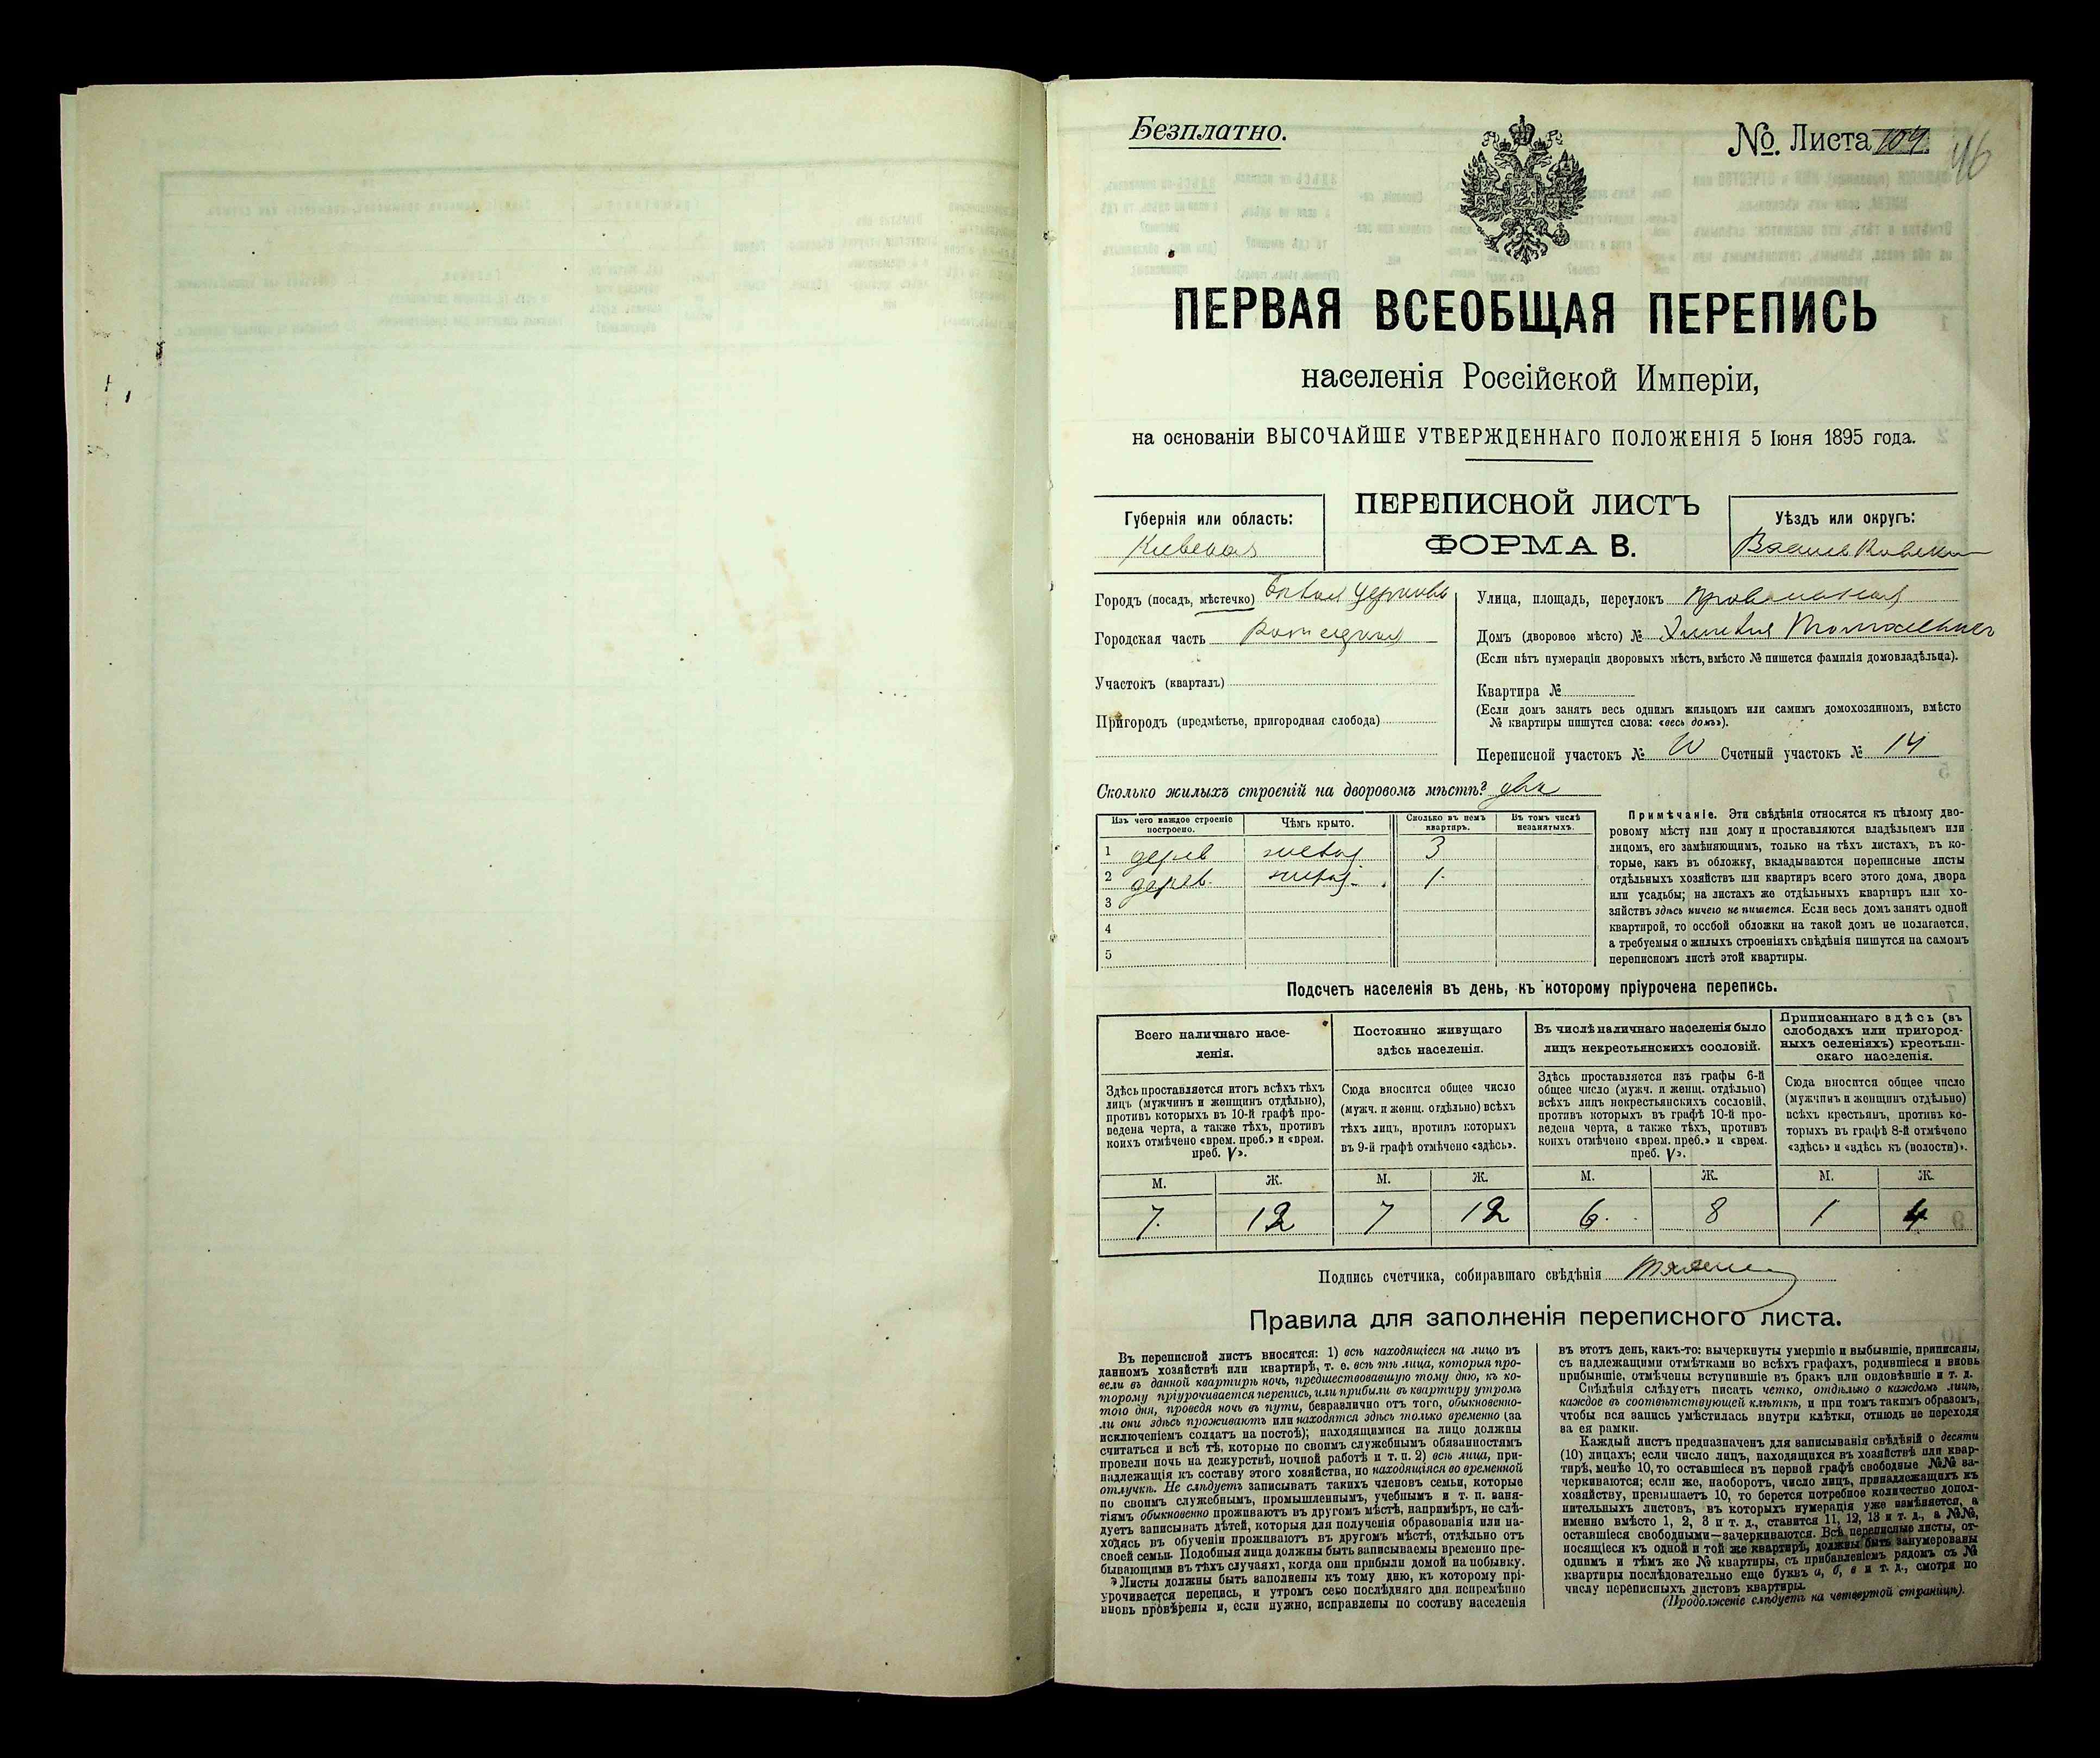 Безплатно.
№. Листа 104.
46
ПЕРВАЯ ВСЕОБЩАЯ ПЕРЕПИСЬ
населенія Россійской Имперіи,
на основаніи ВЫСОЧАЙШЕ УТВЕРЖДЕННАГО ПОЛОЖЕНІЯ 5 Іюня 1895 года.
ПЕРЕПИСНОЙ ЛИСТЪ
ФОРМА В.
Губернія или область:
Кіевская
Уѣздъ или округъ:
Васильковскій
Городъ (посадъ, мѣстечко) Бѣлая Церковь
Городская часть
Участокъ (кварталъ)
Пригородъ (предмѣстье, пригородная слобода)
Улица, площадь, переулокъ
Домъ (дворовое мѣсто) №
(Если нѣтъ нумераціи дворовыхъ мѣстъ, вмѣсто № пишется фамилія домовладѣльца).
Квартира №
(Если домъ занятъ весь однимъ жильцомъ или самимъ домохозяиномъ, вмѣсто
№ квартиры пишутся слова: «весь домъ»).
Переписной участокъ № Счетный участокъ № 14
Сколько жилыхъ строеній на дворовомъ мѣстѣ? два
Изъ чего каждое строеніе построено.
Чѣмъ крыто.
Сколько въ немъ квартиръ.
Въ томъ числѣ незанятыхъ.
1 дерев 3
2 дерев. 1
3
4
5
Примѣчаніе. Эти свѣдѣнія относятся къ цѣлому дво-
ровому мѣсту или дому и проставляются владѣльцемъ или
лицомъ, его замѣняющимъ, только на тѣхъ листахъ, въ ко-
торые, какъ въ обложку, вкладываются переписные листы
отдѣльныхъ хозяйствъ или квартиръ всего этого дома, двора
или усадьбы; на листахъ же отдѣльныхъ квартиръ или хо-
зяйствъ здѣсь ничего не пишется. Если весь домъ занятъ одной
квартирой, то особой обложки на такой домъ не полагается,
а требуемыя о жилыхъ строеніяхъ свѣдѣнія пишутся на самомъ
переписномъ листѣ этой квартиры.
Подсчетъ населенія въ день, къ которому пріурочена перепись.
Всего наличнаго насе-
ленія.
Здѣсь проставляется итогъ всѣхъ тѣхъ
лицъ (мужчинъ и женщинъ отдѣльно),
противъ которыхъ въ 10-й графѣ про-
ведена черта, а также тѣхъ, противъ
коихъ отмѣчено «врем. преб.» и «врем.
преб. V».
Постоянно живущаго
здѣсь населенія.
Сюда вносится общее число
(мужч. и женщ. отдѣльно) всѣхъ
тѣхъ лицъ, противъ которыхъ
въ 9-й графѣ отмѣчено «здѣсь».
Въ числѣ наличнаго населенія было
лицъ некрестьянскихъ сословій.
Здѣсь проставляется изъ графы 6-й
общее число (мужч. и женщ. отдѣльно)
всѣхъ лицъ некрестьянскихъ сословій,
противъ которыхъ въ графѣ 10-й про-
ведена черта, а также тѣхъ, противъ
коихъ отмѣчено «врем. преб.» и «врем.
преб. V».
Приписаннаго здѣсь (въ
слободахъ или пригород-
ныхъ селеніяхъ) крестьян-
скаго населенія.
Сюда вносится общее число
(мужчинъ и женщинъ отдѣльно)
всѣхъ крестьянъ, противъ ко-
торыхъ въ графѣ 8-й отмѣчено
«здѣсь» и «здѣсь къ (волости)».
М. Ж. М. Ж. М. Ж. М. Ж.
7. 12 7 12 6. 8 1 4
Подпись счетчика, собиравшаго свѣдѣнія
Правила для заполненія переписного листа.
Въ переписной листъ вносятся: 1) всѣ находящіеся на лицо въ
данномъ хозяйствѣ или квартирѣ, т. е. всѣ тѣ лица, которыя про-
вели въ данной квартирѣ ночь, предшествовавшую тому дню, къ ко-
торому пріурочивается перепись, или прибыли въ квартиру утромъ
того дня, проведя ночь въ пути, безразлично отъ того, обыкновенно-
ли они здѣсь проживаютъ или находятся здѣсь только временно (за
исключеніемъ солдатъ на постоѣ); находящимися на лицо должны
считаться и всѣ тѣ, которые по своимъ служебнымъ обязанностямъ
провели ночь на дежурствѣ, ночной работѣ и т. п. 2) всѣ лица, при-
надлежащія къ составу этого хозяйства, но находящіяся во временной
отлучкѣ. Не слѣдуетъ записывать такихъ членовъ семьи, которые
по своимъ служебнымъ, промышленнымъ, учебнымъ и т. п. заня-
тіямъ обыкновенно проживаютъ въ другомъ мѣстѣ, напримѣръ, не слѣ-
дуетъ записывать дѣтей, которыя для полученія образованія или на-
ходясь въ обученіи проживаютъ въ другомъ мѣстѣ, отдѣльно отъ
своей семьи. Подобныя лица должны быть записываемы временно пре-
бывающими въ тѣхъ случаяхъ, когда они прибыли домой на побывку.
Листы должны быть заполнены къ тому дню, къ которому прі-
урочивается перепись, и утромъ сего послѣдняго дня непремѣнно
вновь провѣрены и, если нужно, исправлены по составу населенія
въ этотъ день, какъ-то: вычеркнуты умершіе и выбывшіе, приписаны,
съ надлежащими отмѣтками во всѣхъ графахъ, родившіеся и вновь
прибывшіе, отмѣчены вступившіе въ бракъ или овдовѣвшіе и т. д.
Свѣдѣнія слѣдуетъ писать четко, отдѣльно о каждомъ лицѣ,
каждое въ соотвѣтствующей клѣткѣ, и при томъ такимъ образомъ,
чтобы вся запись умѣстилась внутри клѣтки, отнюдь не переходя
за ея рамки.
Каждый листъ предназначенъ для записыванія свѣдѣній о десяти
(10) лицахъ; если число лицъ, находящихся въ хозяйствѣ или квар-
тирѣ, менѣе 10, то оставшіеся въ первой графѣ свободные №№ за-
черкиваются; если же, наоборотъ, число лицъ, принадлежащихъ къ
хозяйству, превышаетъ 10, то берется потребное количество допол-
нительныхъ листовъ, въ которыхъ нумерація уже измѣняется, а
именно вмѣсто 1, 2, 3 и т. д., ставится 11, 12, 13 и т. д., а №№,
оставшіеся свободными—зачеркиваются. Всѣ переписные листы, от-
носящіеся къ одной и той же квартирѣ, должны быть занумерованы
однимъ и тѣмъ же № квартиры, съ прибавленіемъ рядомъ съ №
квартиры послѣдовательно еще буквъ а, б, в и т. д., смотря по
числу переписныхъ листовъ квартиры.
(Продолженіе слѣдуетъ на четвертой страницѣ).